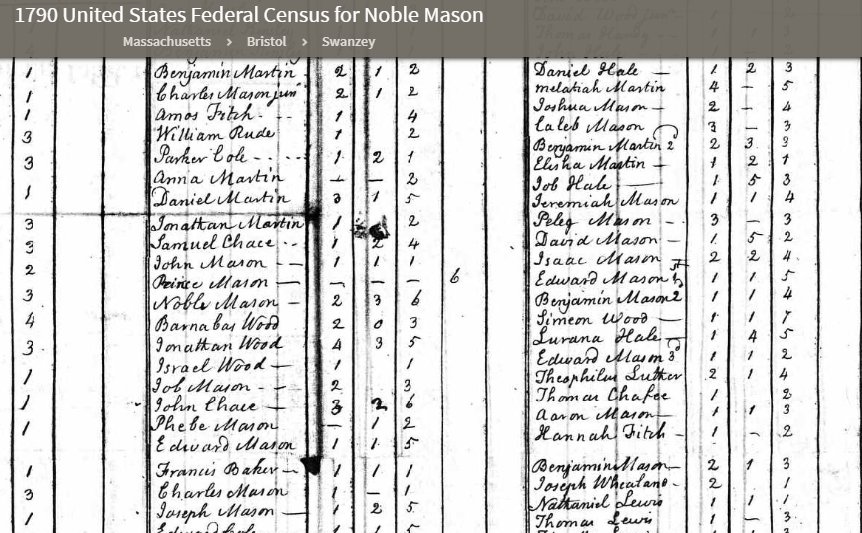 1790 United States Federal Census for Noble Mason
Massachusetts › Bristol › Swanzey
Benjamin Martin 2 1 2
Charles Mason junr 2 1 2
Amos Fitch 1 4
William Rude 1 2
Parker Cole 1 2 1
Anna Martin — — 2
Daniel Martin 3 1 5
Jonathan Martin 1 2
Samuel Chace 1 2 4
John Mason — 1 1 1
Prince Mason — — — — 6
Noble Mason — 2 3 6
Barnabas Wood 2 0 3
Jonathan Wood 4 3 5
Israel Wood — 1 1
Job Mason — 2 3
John Chace — 3 2 6
Phebe Mason — 1 2
Edward Mason 1 1 5
Francis Baker — 1 1 1
Charles Mason 1 — 1
Joseph Mason — 1 2 5
1
1
1
3
3
1
3
3
2
3
4
3
1
1
1
1
3
1
David Wood junr 2
Thomas 1 1 3
John Hale 2
Daniel Hale — 1 2 3
melatiah Martin 4 — 5
Joshua Mason — 2 — 4
Caleb Mason 3 — 3
Benjamin Martin 2d 2 3 3
Elisha Martin — 1 2 1
Job Hale — 1 5 3
Jeremiah Mason 1 1 4
Peleg Mason — 3 — 3
David Mason — 1 5 2
Isaac Mason 2 2 4
Edward Mason 1 1 5
Benjamin Mason 2 1 1 4
Simeon Wood — 1 1 7
Lurana Hale 1 4 5
Edward Mason 3d 1 1 2
Theophilus Luther 2 1 4
Thomas Chafee 1 2
Aaron Mason — 1 1 3
Hannah Fitch — 1 — 2
Benjamin Mason — 2 1 3
Joseph Whealand - 2 1
Nathaniel Lewis 1 1 1
Thomas Lewis 1 — 3